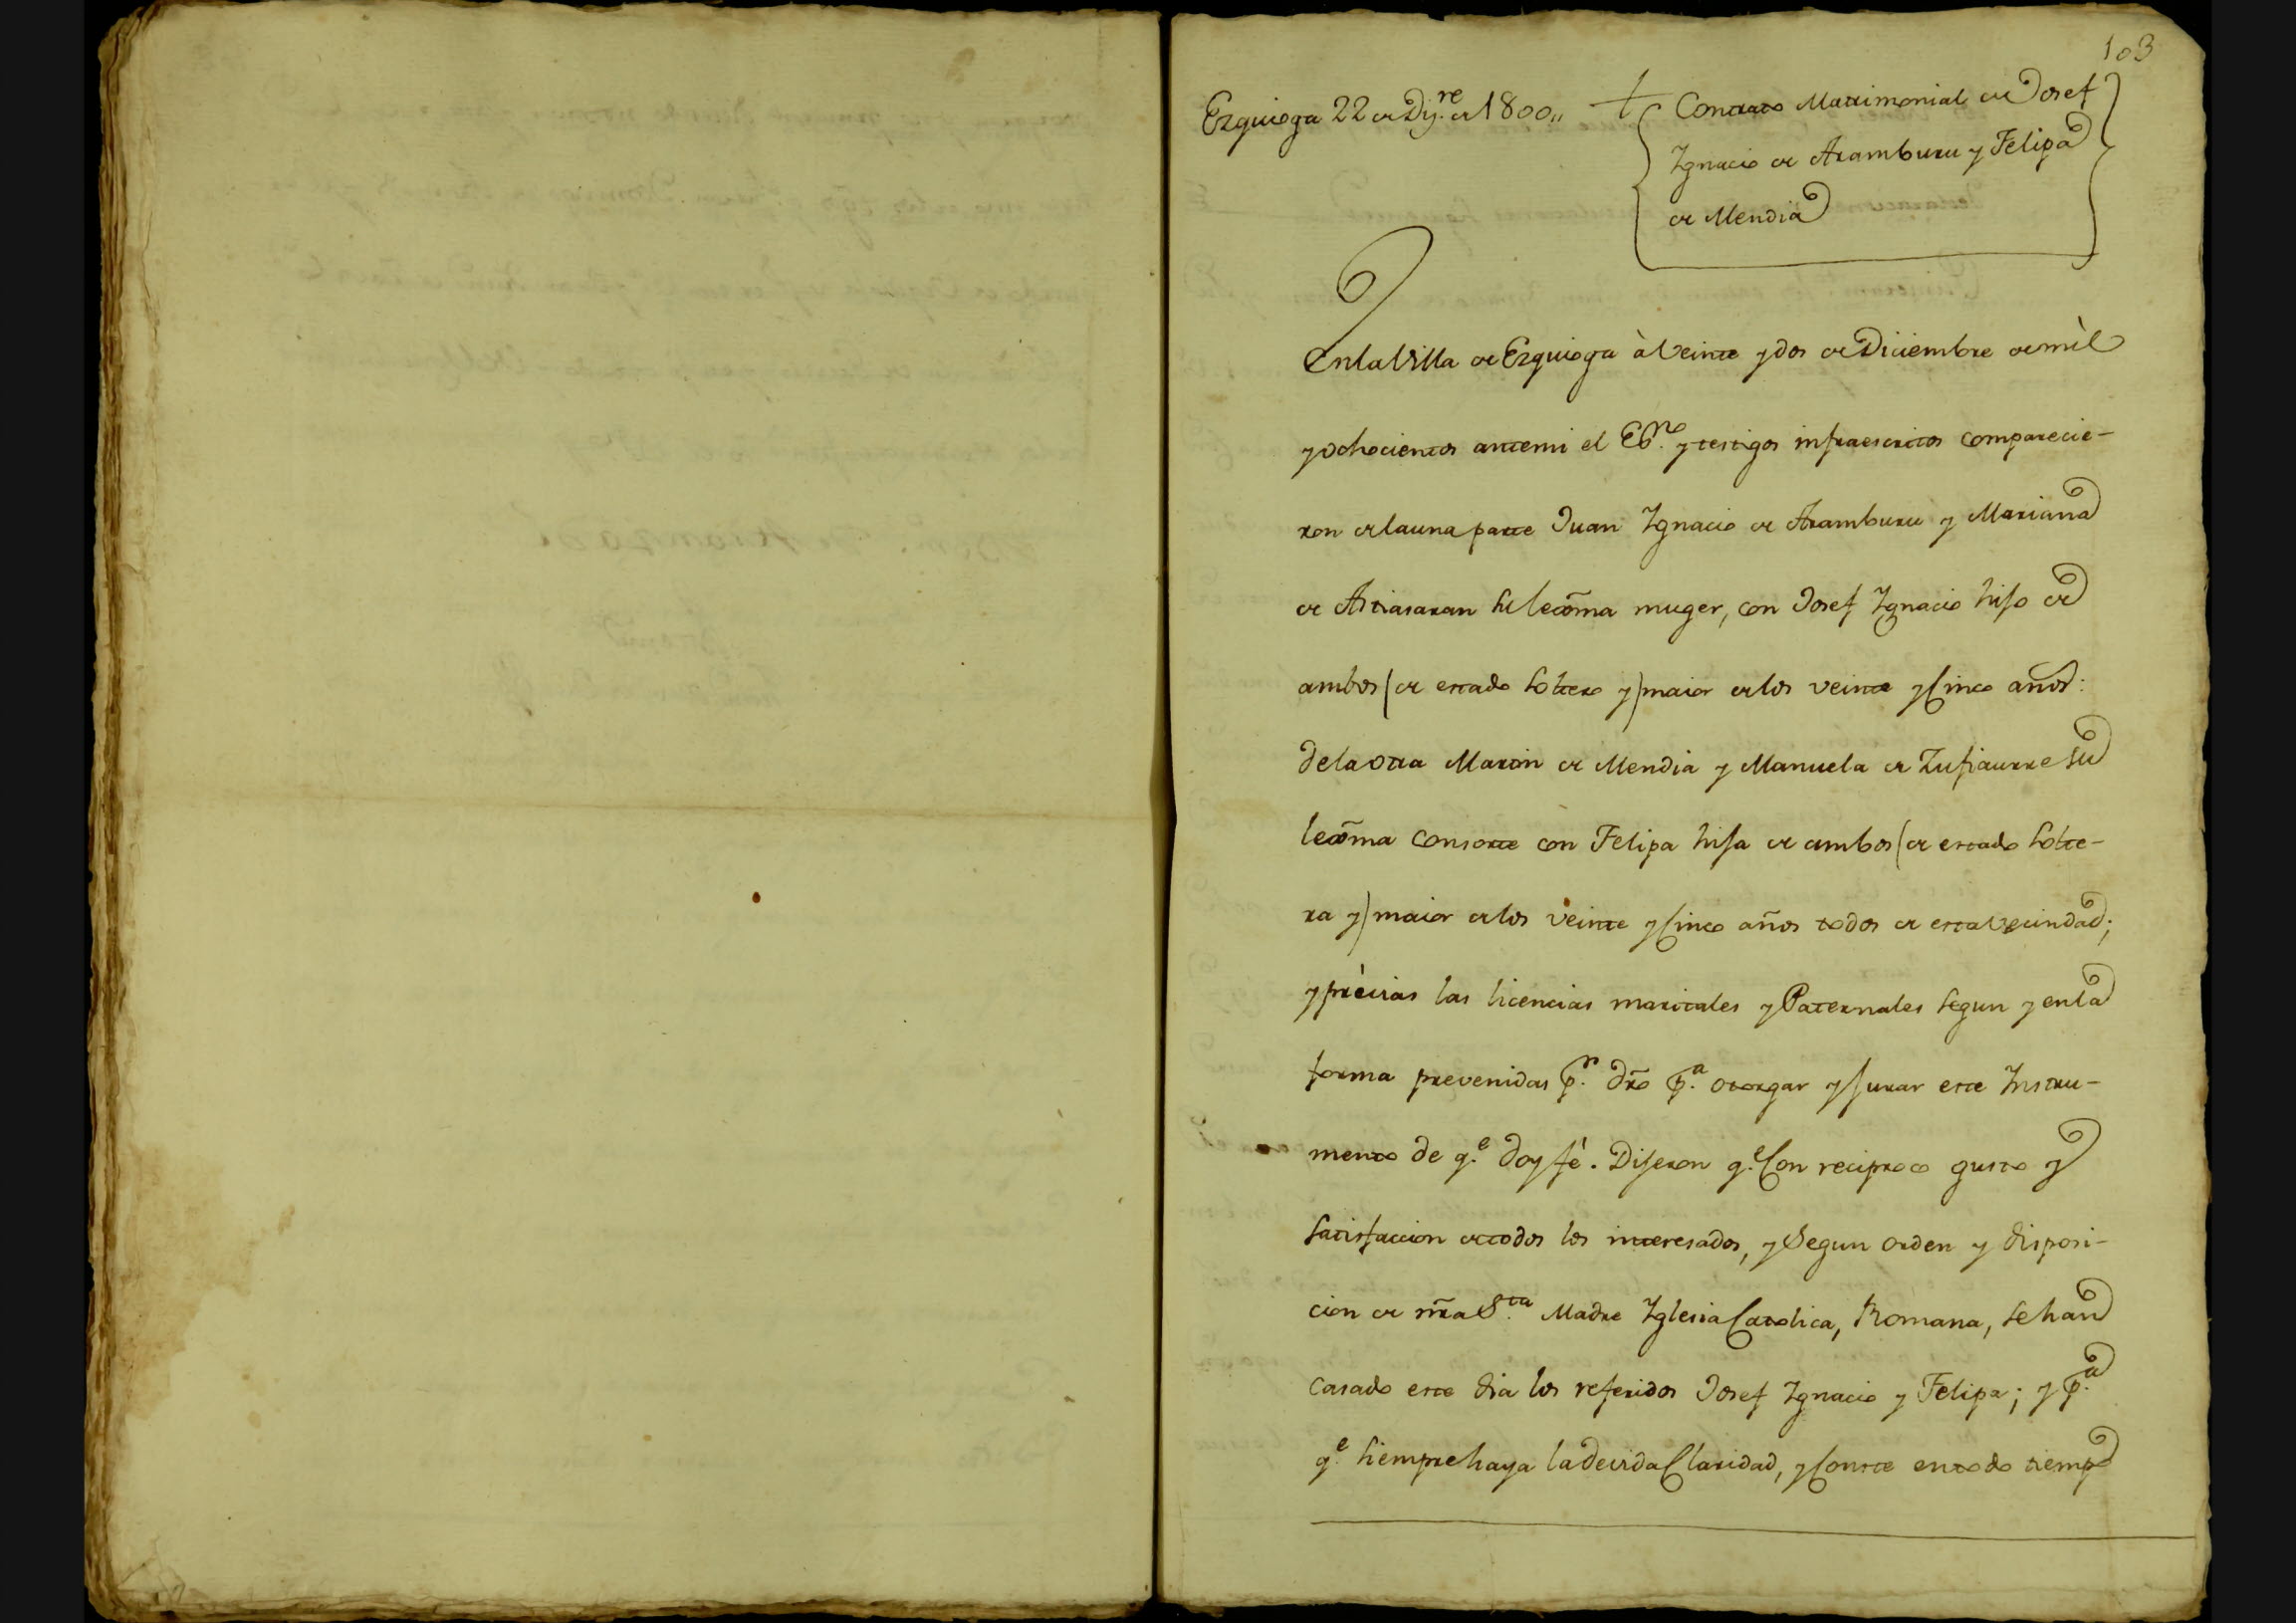 103
Ezquioga 22 de Dz.re de 1800,,
Contrato Matrimonial de Josef
Ygnacio de Aramburu y Felipa
de Mendia
En la Villa de Ezquioga à Veinte y dos de Diciembre de mìl
y ochocientos ante mi el Es.no y testigos infraescritos comparecie-
ron de la una parte Juan Ygnacio de Aramburu y Mariana
de Astiasaran su lexma muger, con Josef Ygnacio hijo de
ambos (de estado soltero y) maior de los veinte y Cinco años:
de la otra Martin de Mendia y Manuela de Zufiaurre su
lexma consorte con Felipa hija de ambos (de estado solte-
ra y) maior de los veinte y Cinco años todos de esta Vecindad;
y prèvias las licencias maritales y Paternales segun y en la
forma prevenidas p.r dro p.a otorgar y jurar este Ynstru-
mento de q.e doy fè. Dijeron q.e Con reciproco gusto y
satisfaccion de todos los interesados, y Segun orden y disposi-
cion de nra S.ta Madre Yglesia Catolica, Romana, se han
casado este dia los referidos Josef Ygnacio y Felipa; y p.a
q.e siempre haya la devida Claridad, y Conste en todo tiempo